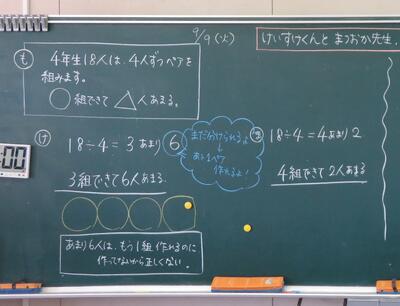 9/9(火)
けいすけくんと まつおか先生.
も
4年生18人は、4人ずつペアを
組みます。
○組できて △人あまる。
け
18÷4=3あまり6
3組できて6人あまる.
まだ分けられるよ
↓
あと1ペア
作れるよ!
ま
18÷4=4あまり2
4組できて2人あまる
あまり6人は、もう1組作れるのに
作ってないから正しくない.
:00